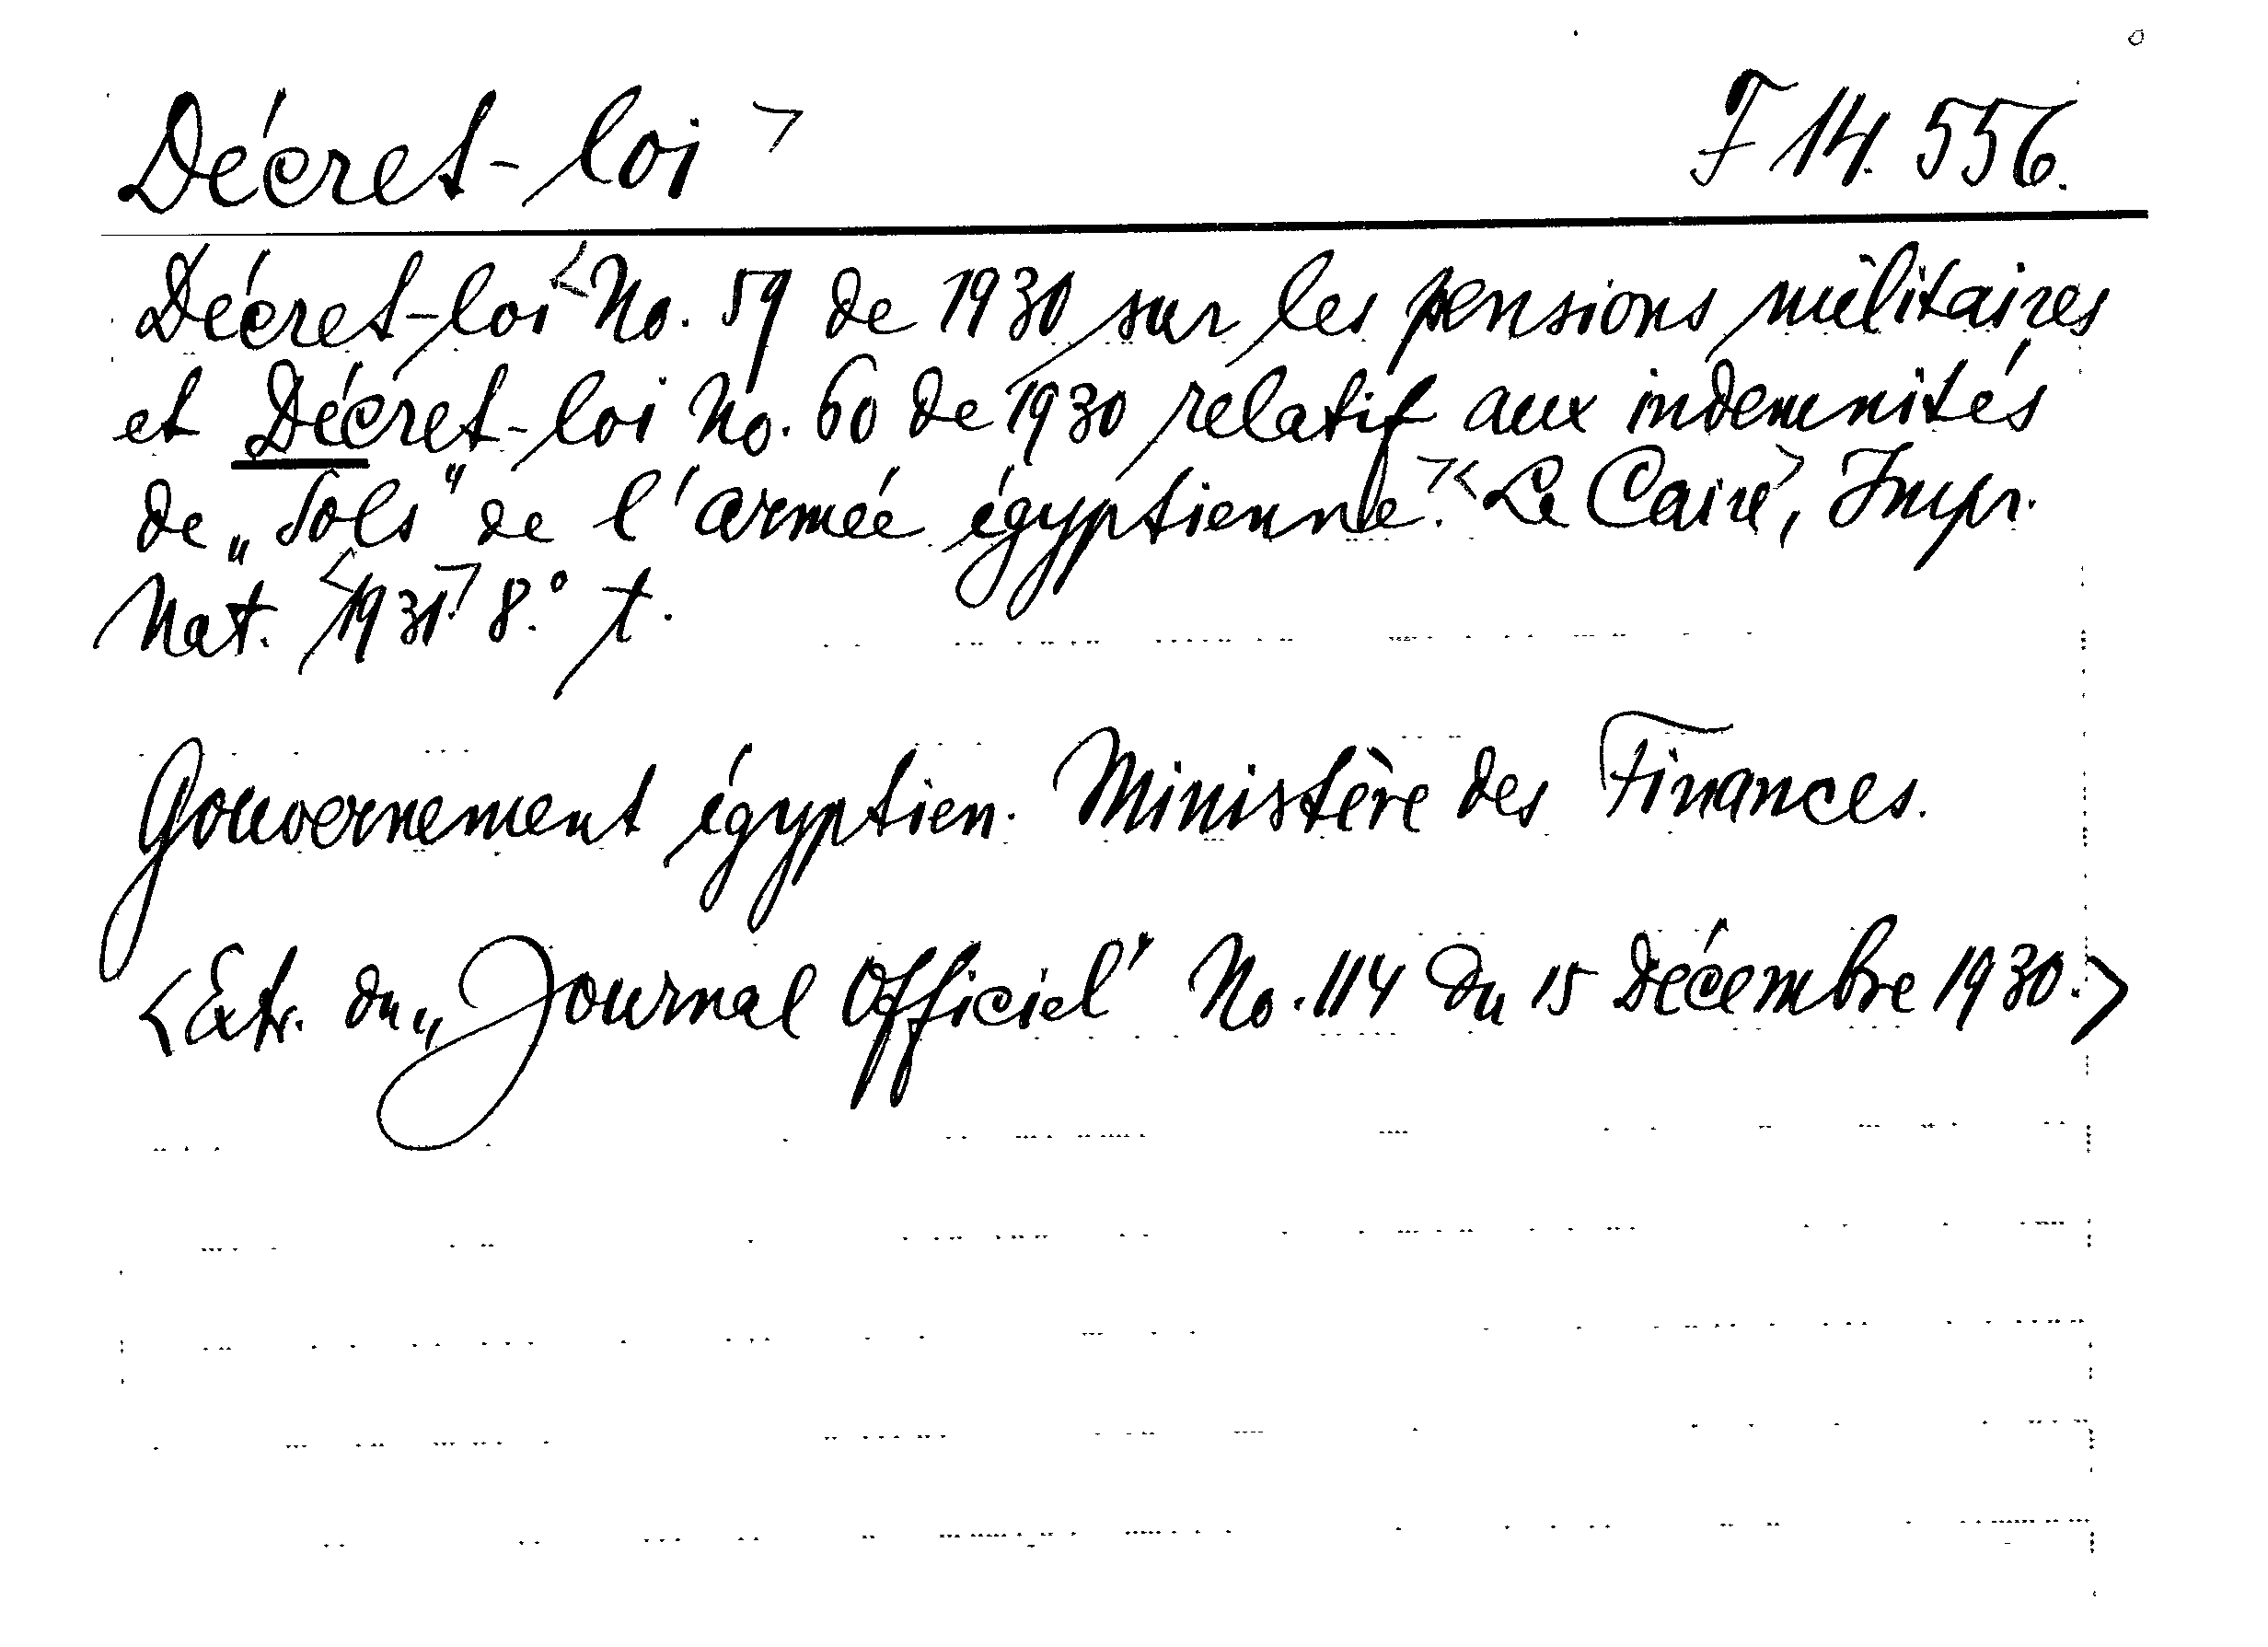 Décret-loi > F 14.556.
Décret-loi < No. 59 de 1930 sur les pensions militaires
et Décret-loi No. 60 de 1930 relatif aux indemnités
de „Sols" de l'armée égyptienne. > < Le Caire >, Impr.
Nat. < 1931. > 8.° t.
Gouvernement égyptien. Ministère des Finances.
< Extr. du „Journal Officiel" No. 114 du 15 Décembre 1930. >